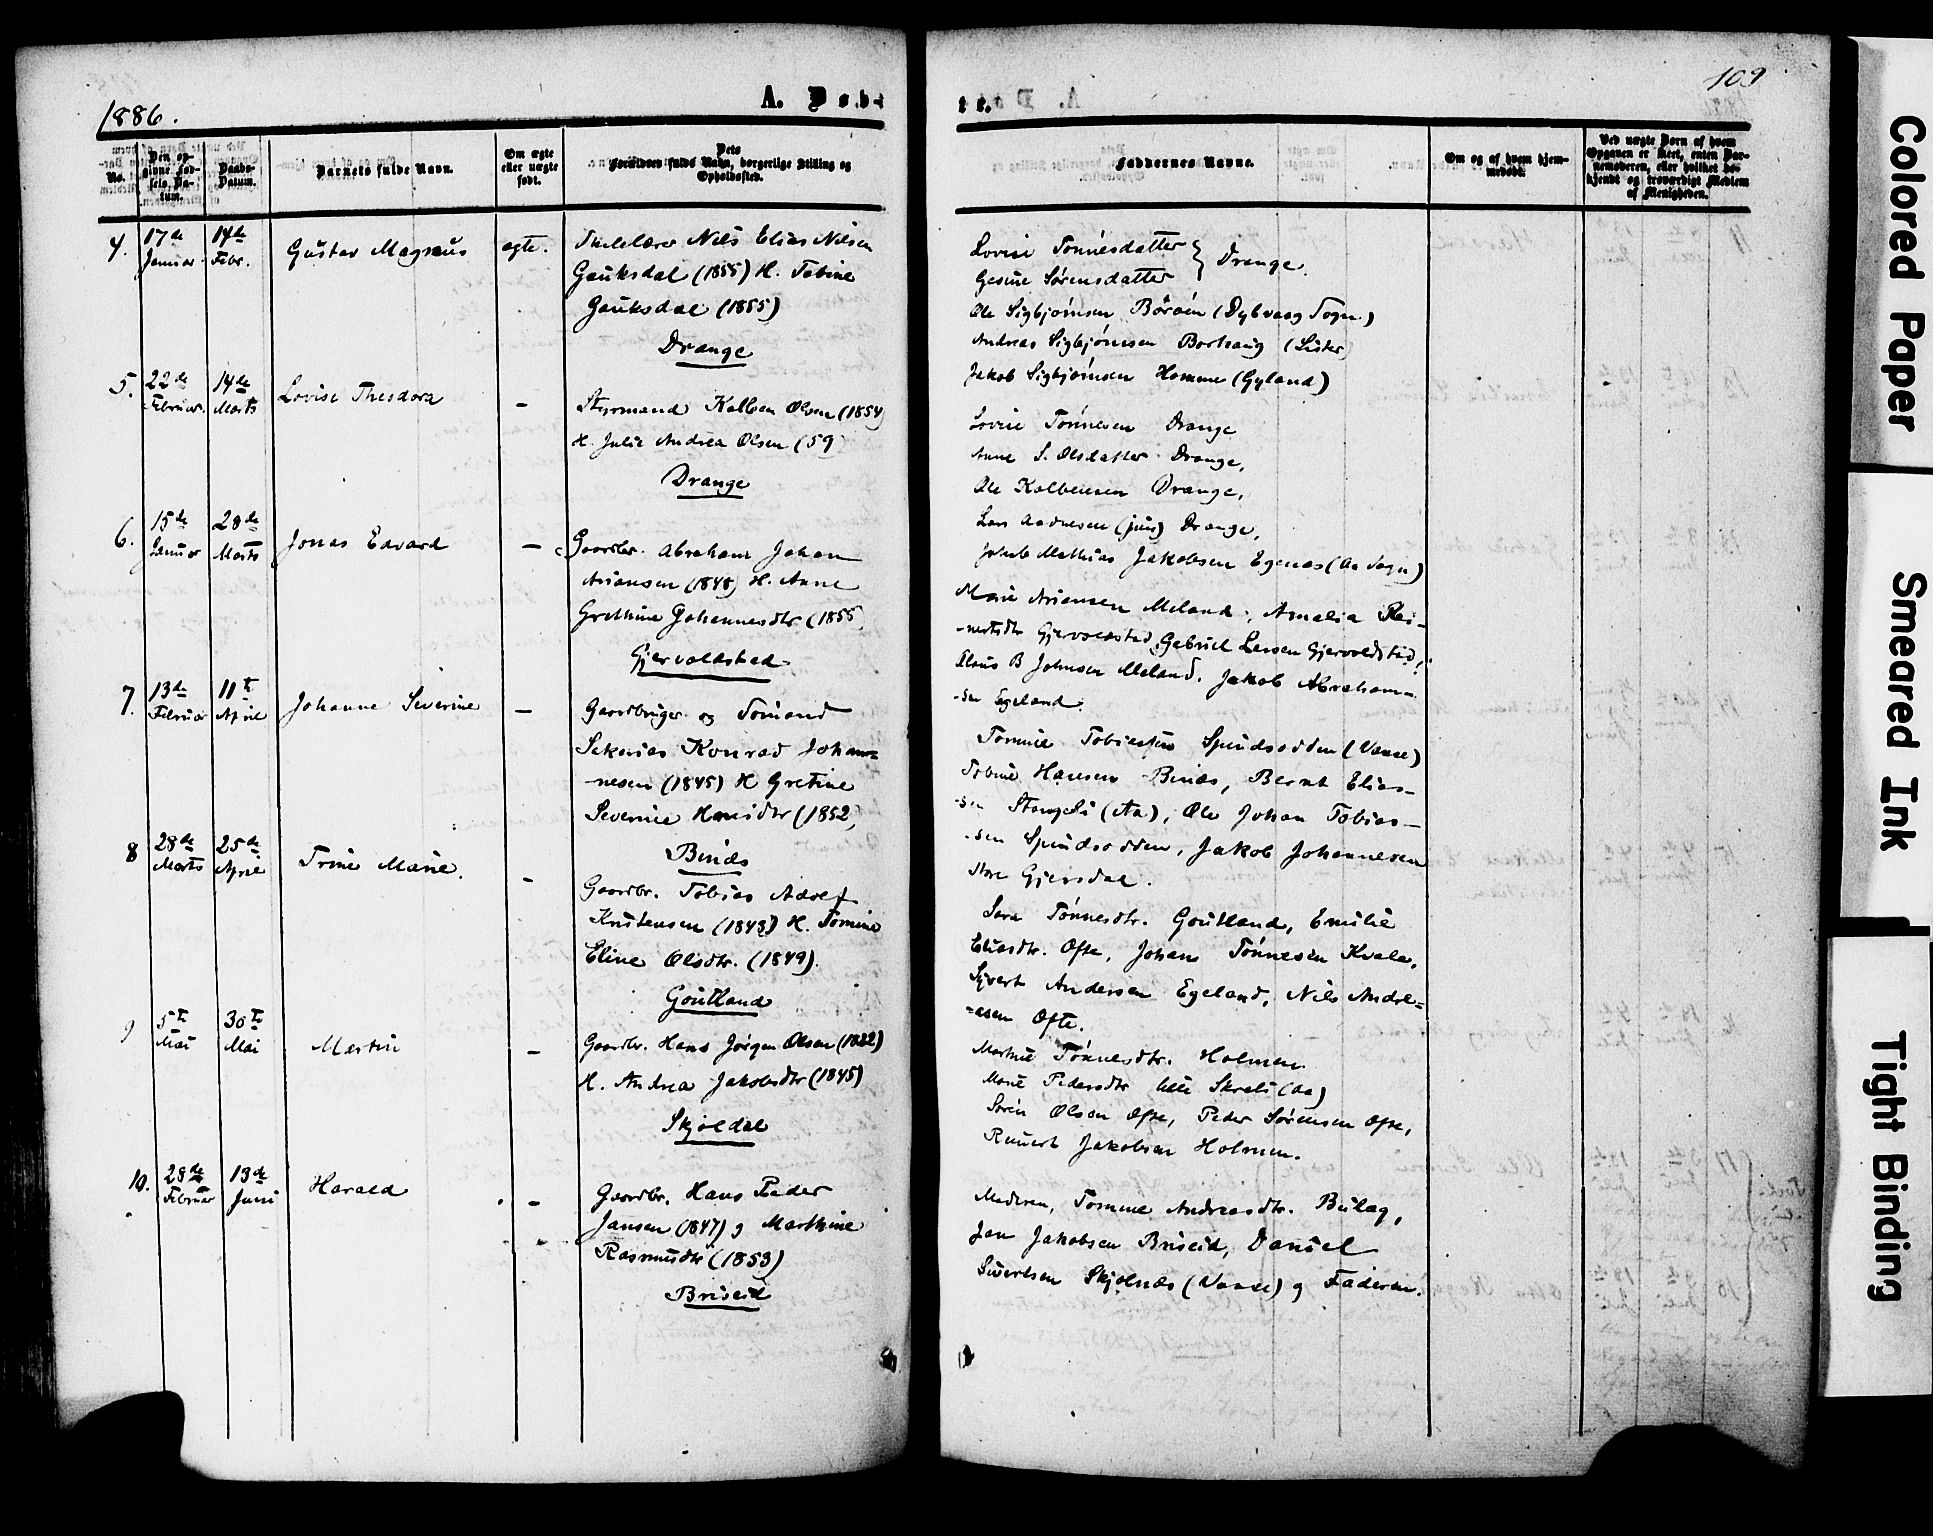 1886.
A. Døb-
te.
109
No.
Den op-
givne Fød-
sels Da-
tum.
Daabs-
Datum.
Barnets fulde Navn.
Om ægte
eller uægte
født.
Dets
Forældres fulde Navn, borgerlige Stilling og
Opholdssted.
Faddernes Navne.
Om og af hvem hjem-
medøbt.
Ved uægte Børn af hvem
Opgaven er skeet, enten Bar-
nemoderen, eller hvilket be-
kjendt og troværdigt Medlem
af Menigheden.
4.
17de
Januar
14de
Febr.
Gustav Magnus
ægte.
Skolelærer Nils Elias Nilsen
Gauksdal (1855) H. Tobine
Gauksdal (1855)
Drange
Lovise Tønnesdatter
Gesine Sørensdatter } Drange.
Ole Sigbjørnsen Børøen (Dybvaag Sogn)
Andreas Sigbjørnsen Borhaug (Lister)
Jakob Sigbjørnsen Homme (Gyland)
5.
22de
Februar.
14de
Marts
Lovise Theodora
-
Styrmand Kolben Olsen (1854)
H. Julie Andrea Olsen (59)
Drange
Lovise Tønnesen Drange
Anne S. Olsdatter Drange,
Ole Kolbensen Drange,
Lars Aadnesen (jun) Drange,
Jakob Mathias Jakobsen Egenæs (Aa Sogn)
6.
15de
Januar
28de
Marts
Jonas Edvard
-
Gaardbr. Abraham Johan
Ariansen (1848) H. Anne
Grethine Johannesdtr (1855
Gjervoldstad
Marie Ariansen Meland, Amalia Rei-
-nertsdtr Gjervoldstad, Gabriel Larsen Gjervoldstad,
Klaus B Johnsen Meland. Jakob Abraham-
-sen Egeland.
7.
13de
Februar
11te
April
Johanne Severine
-
Gaardbruger og Sømand
Sakarias Konrad Johan-
-nesen (1845) H Gretine
Severine Hansdtr (1852)
Binæs
Tomine Tobiassen Spindsodden (Vanse)
Tobine Hansen Binæs, Bernt Elias-
-sen Stengels (Aa), Ole Johan Tobias-
-sen Spindsodden, Jakob Johannesen
Store Gjersdal.
8
28de
Marts
25de
April
Trine Marie.
-
Gaardbr. Tobias Adolf
Knutensen (1843) H. Tomine
Eline Olsdtr. (1849).
Goutland
Sara Tønnesdtr. Goutland, Emilie
Eliasdtr. Ofte, Johans Tønnesen Kvale,
Sivert Andersen Egeland, Nils Andre-
-asen Ofte.
9
5te
Mai
30te
Mai
Martin
-
Gaardbr. Hans Jørgen Olsen (1822)
H. Andrea Jakobsdtr (1845)
Skjoldal
Martine Tønnesdtr. Holmen.
Marie Pedersdtr lille Skreli (Aa)
Søren Olsen Ofte, Peder Sørensen Ofte,
Reinert Jakobsen Holmen.
10.
28de
Februar
13de
Juni
Harald
-
Gaardbr. Hans Peder
Jansen (1847) og Marthine
Rasmusdtr (1853)
Briseid
Moderen, Tomine Andreasdtr. Búlæg,
Jan Jakobsen Briseid, Daniel
Sivertsen Skjolnæs (Vanse) og Faderen.
Colored Paper
Smeared Ink
Tight Binding